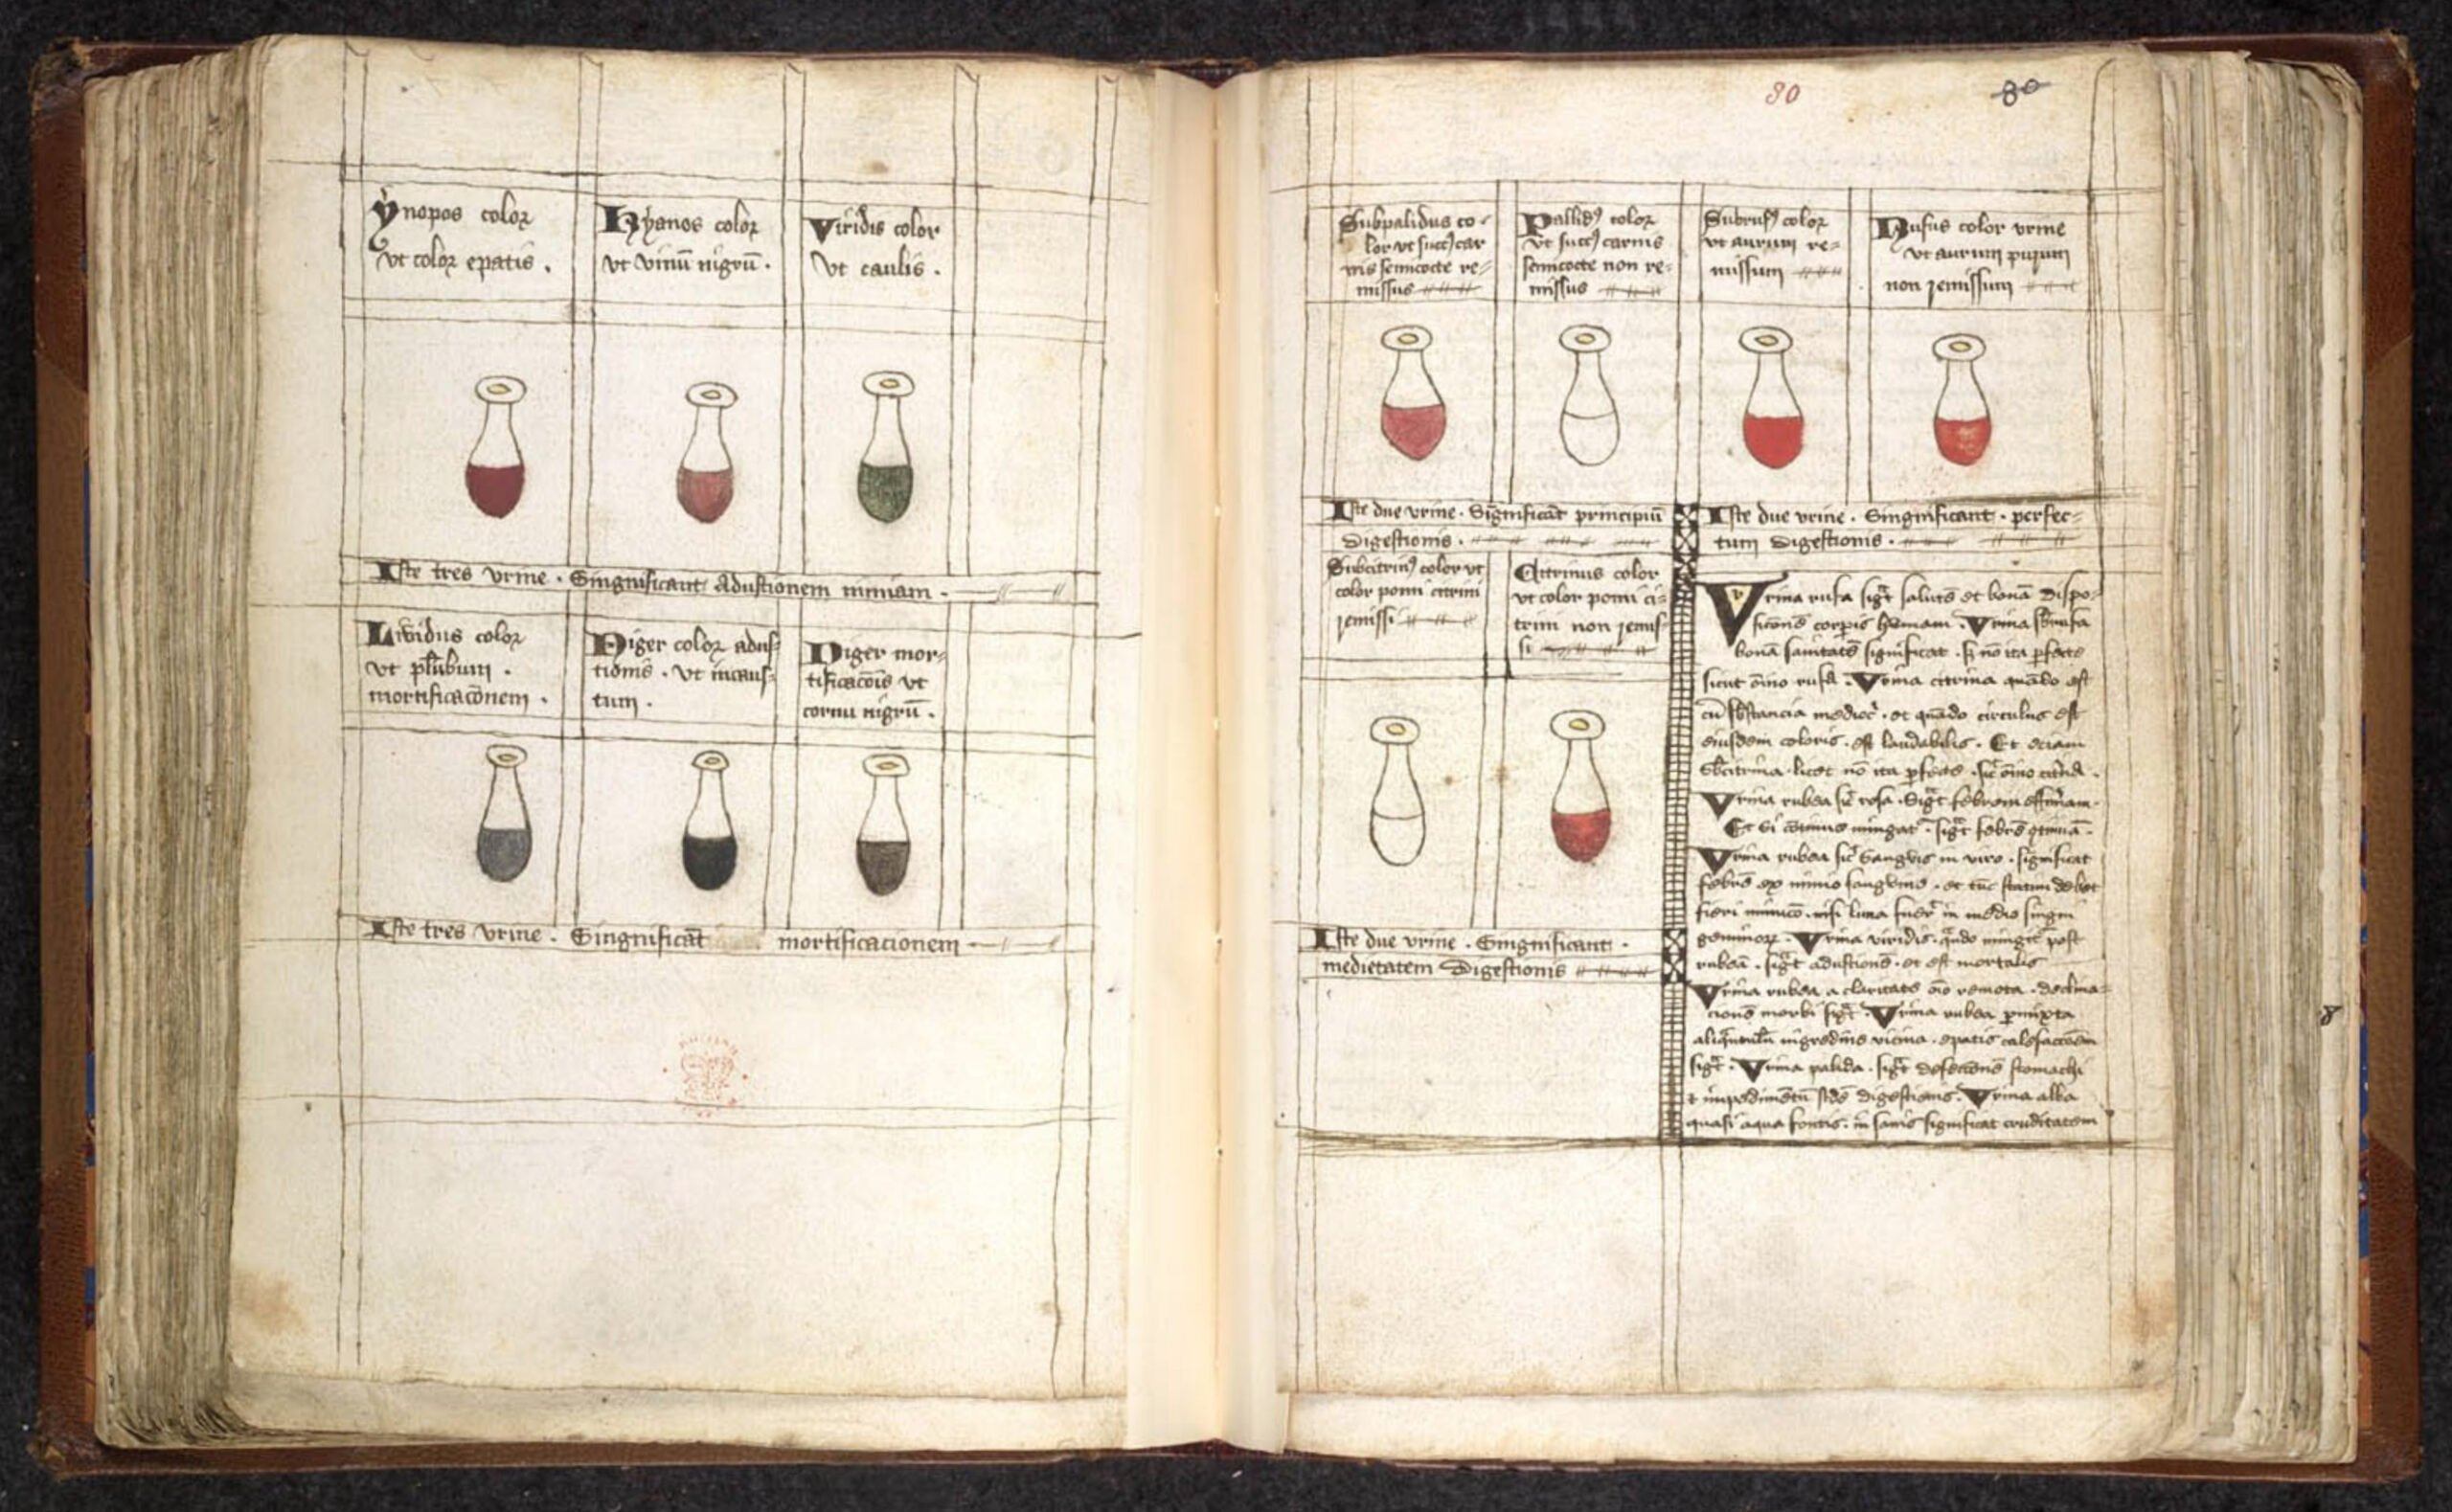 ynopos color
vt color epatis .
Kyanos color
vt vinū nigrū .
Viridis color
vt caulis .
Iste tres vrine . Singnificant Adustionem nimiam .
Lividus color
vt plūbum .
mortificacōnem .
Niger color adus-
tionis . vt incaus-
tum .
Niger mor-
tificacōis vt
cornu nigrū .
Iste tres vrine . Singnificāt mortificacionem
80
80
Subpalidus co-
lor vt succꝰ car
nis semicocte re-
missus
Pallidꝰ color
vt succꝰ carnis
semicocte non re-
missus
Subrufꝰ color
vt aurum re-
missum
Rufus color vrine
vt aurum purum
non remissum
Iste due vrine . Significāt principiū
digestionis .
Iste due vrine . Singnificant . perfec-
tum digestionis .
Subcitrinꝰ color vt
color pomi citrini
remissi
Citrinus color
vt color pomi ci-
trini non remis
si
Iste due vrine . Singnificant .
medietatem digestionis
Vrina rufa sigt̄ salutē et bonā dispo-
sicionē corpis humani . Vrina sbrufa
bonā sanitatē significat . sꝫ nō ita pfecte
sicut oīno rufa . Vrina citrina quādo est
cū sbstancia mediocr̄ . et quādo circulus est
eiusdem coloris . est laudabilis . Et eciam
sbcitrina . licet nō ita pfecte . sic̄ oīno citrīa .
Vrina rubea sic̄ rosa . Sigt̄ febrem effimam .
Et si cōtinue mingat̄ . sigt̄ febrē ꝯtinuā .
Vrina rubea sic̄ sangvis in vitro . significat
febrē ex nimio sangvine . et tūc statim debet
fieri minucō . nisi luna fuer̄ in medio singni
geminoꝝ . Vrina viridis . qn̄do mingit̄ post
rubeā . sigt̄ adustionē . et est mortalis
Vrina rubea a claritate oīo remota . declina-
cionē morbi sigt̄ . Vrina rubea pmixta
aliqūtulū nigredini vicina . epatis calefaccōem
sigt̄ . Vrina palida . sigt̄ defeccionē stomachi
⁊ impedimētū scde digestionis . Vrina alba
quasi aqua fontis . in sanis significat cruditatem
8